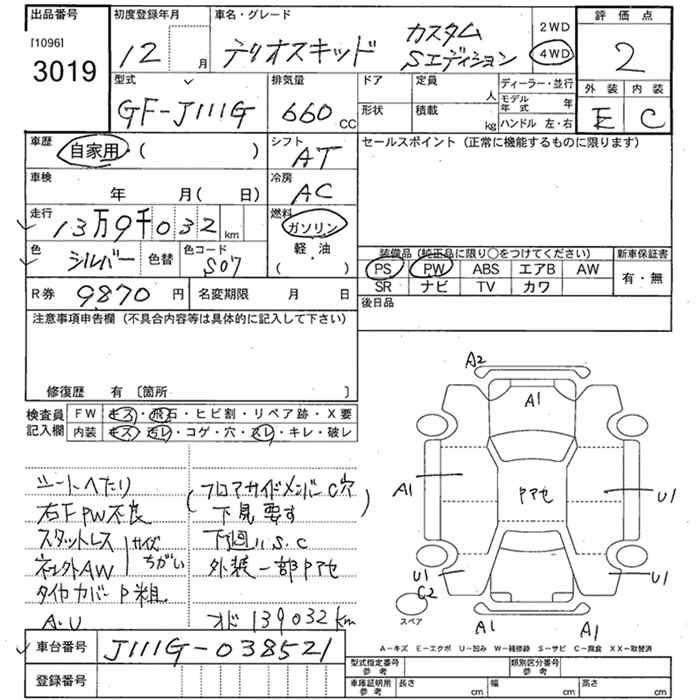 出品番号
[1096]
3019
初度登録年月
12 月
車名・グレード
テリオスキッド カスタム
Sエディション
2WD
4WD
評価点
2
外装 内装
E C
型式
GF-J111G
排気量
660 CC
ドア
形状
定員 人
積載 kg
ディーラー・並行
モデル年式 年
ハンドル 左・右
車歴 自家用 ( )
シフト AT
車検 年 月( 日)
冷房 AC
走行 13万9千032 km
燃料 ガソリン
軽・油
( )
色 シルバー 色替 色コード S07
R券 9870 円 名変期限 月 日
セールスポイント (正常に機能するものに限ります)
装備品 (純正品に限り○をつけてください) 新車保証書
PS PW ABS エアB AW 有・無
SR ナビ TV カワ
後日品
注意事項申告欄 (不具合内容等は具体的に記入して下さい)
修復歴 有 〔箇所 〕
検査員記入欄
FW キズ・飛石・ヒビ割・リペア跡・X要
内装 キズ・汚レ・コゲ・穴・スレ・キレ・破レ
シートへたり
右F PW不良
スタットレス サイズ
ネジ外AW ちがい
タイヤカバー P粗
A・U
(フロアサイドメンバーC穴)
下見要す
下廻りS.C
外装一部Pアセ
オド139032km
A2
A1
A1
Pアセ
U1
U1
C2
U1
スペア
A1
A1
A-キズ E-エクボ U-凹み W-補修跡 S-サビ C-腐食 XX-取替済
車台番号 J111G-038521
登録番号
型式指定番号 参考
類別区分番号 参考
車庫証明用 参考 長さ cm 幅 cm 高さ cm